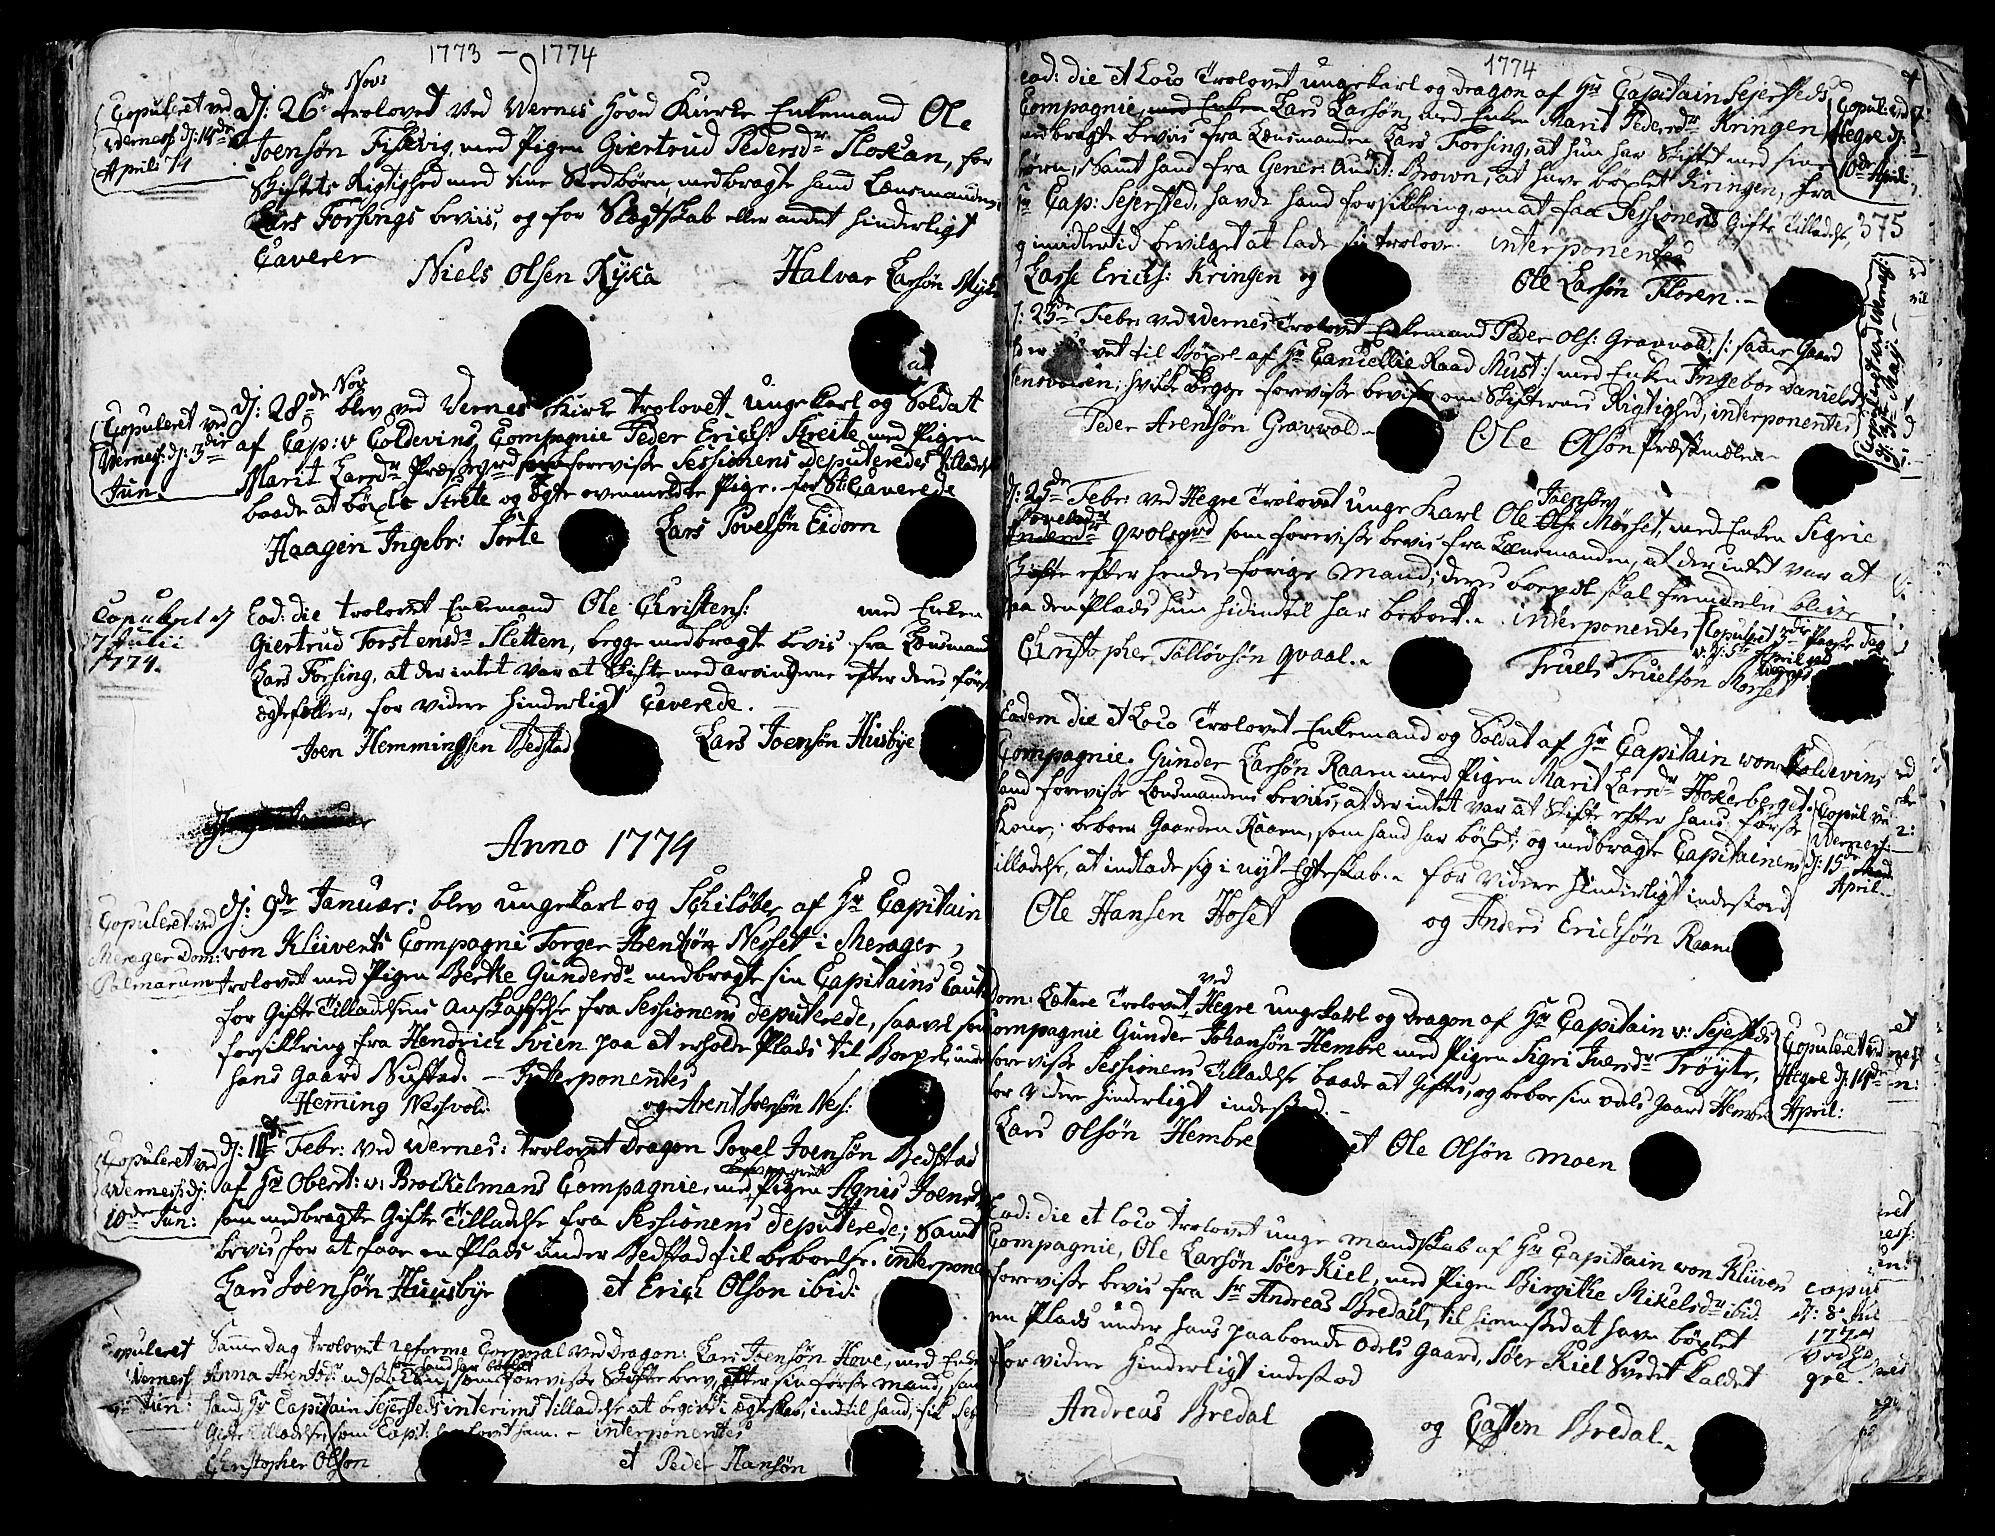 1773 — 1774
Copuleret ved
Werness dj: 14de
Aprili 74
Dj: 26de Nov: trolovet ved Wernes Hoved Kirke Enkemand Ole
Joensøn Fiskvig, med Pigen Giertrud Pedersdr Moskan, for
Skiftets Rigtighed med sine Stedbørn, medbragte hand Lænsmanden
Lars Forsings beviis, og for Slegtskab eller andet hinderligt
Caverer
Niels Olsen Ryka Halvar Larsøn
Copuleret ved
Werness: dj: 3die
Jun.
Dj: 28de Nov blev ved Wernes Kirke trolovet ungekarl og Soldat
af Cap: v Coldevins Compagnie Peder Erichs: Streite med Pigen
Marit Larsdr Præstegrd foreviste Sessionens deputeredes tilladelse
baade at böxle Streite og ægte ovenmeldte Pige. for Caverede
Haagen Ingebr: Forte Lars Povelsøn Eidom
Copuleret dj
7 Julii
1774.
Eod: die trolovet Enkemand Ole Christens: med Enken
Giertrud Torstensdr Sletten, begge medbragte bevis fra Lænsmand
Lars Forsing, at der intet var at Skifte med arvingerne efter deres første
ægtefæller, for videre hinderligt Caverede.
Joen Hemmingsen Bedstad Lars Joensøn Husbye
Anno 1774
Copuleret ved
Merager Dom:
Palmarum
dj: 9de Januar: blev ungekarl og Skiløber af Hr Capitain
von Klüvers Compagni Torger Arentsøn Nesset i Merager,
trolovet med Pigen Berte Gundersdr medbragte sin Capitains
for Gifte Tilladelsens Anskaffelse fra Sessionens deputerede, saavel som
forsikkring fra Hendrich Svien paa at erholde Plads til Boxel under
hans Gaard Nustad. — Interponentes
Hemming Nessvol og Arent Joensøn Ness:
Copuleret ved
Werness dj:
10de Jun:
Dj: Febr: ved Wernes: trolovet Dragon Povel Joensøn Bedstad
af Hr Oberst: v: Brockelmans Compagnie, med Pigen Agnis Joensdr
som medbragte Gifte Tilladelse fra Sessionens deputerede; samt
bevis for at faae en Plads under Bedstad til beboelse. interponentes
Lars Joensøn Huusbye et Erich Olson ibid:
Copuleret
Werness
Jun:
Samme Dag trolovet reforme Corporal ved Dragon: Lars Joensøn Hove, med Enken
Anna Arentsdr som foreviste Skifte brev, efter sin første mand, samt
hand Hr Capitain Sejersteds interims tilladelse at begive i ægteskab, indtil hand fik
Gifte Tilladelse, som Capt: lovet ham. — interponentes
Christopher Olson et Peder Hansøn
1774
Eod: die et Loco Trolovet ungekarl og dragon af Hr Capitain Sejersteds
Compagnie, Lars Larsøn, med Enken Marit Pedersdr Kringen
medbragte beviis fra Lænsmanden Lars Forsing, at hun har Skiftet med sine
børn, samt hand fra Gener: Audit: Brown, at have böxlet Kringen, fra
Cap: Sejersted, havde hand forsikkring, om at faa Sessionens Gifte Tilladelse,
og imidlertid bevilget at lade sig trolove. interponentes
Lasse Erichs: Kringen og Ole Larsøn Floren.
Copul: ved
Hegre dj
10de April:
375
dj: 23de Febr: ved Wernes Trolovet Enkemand Peder Ols: Gravvold /: samme Gaard
til Böxel af Hr Cancellie Raad Must :/ med Enken Ingebor Danielsdr
hvilke begge foreviste bevis om Skifternes Rigtighed, interponentes
Peder Arentsøn Gravvold Ole Olsøn Præstmoen
Copuleret ved Werness:
dj: 31te Maji
dj: 25de Febr: ved Hegre Trolovet unge Karl Ole Joensøn Mørset, med Enken Sigrie
Povelsdr Qvolsgrd som foreviste bevis fra Lænsmanden, at der intet var at
Skifte efter hendes forige Mand; deres boepæl skal fremdeles blive
paa den Plads hun hidindtil har beboet. interponentes
Christopher Tollovsøn Qvaal. Truels Truelsøn Morset
Copuleret 3die Paaske dag
dj: 5te April ved
Wernes
Eadem die et Loco Trolovet Enkemand og Soldat af Hr Capitain von Coldevins
Compagnie. Gunder Larsøn Raaen med Pigen Marit Larsdr Hokerberget.
hand foreviste Lænsmandens beviis, at der intet var at Skifte efter hans første
Kone; beboer Gaarden Raaen, som hand har böxlet; og medbragte Capitainens
tilladelse, at indlade sig i nyt Egteskab. for videre hinderligt indestod
Ole Hansen Hoset og Anders Erichsøn Raaen
Copul: ved
Werness:
dj: 15de
April
Dom: Lætare Trolovet ved Hegre ungekarl og Dragon af Hr Capitain v: Sejersteds
Compagnie Gunder Johansøn Hembre med Pigen Sigri Iversdr Trøyte,
foreviste Sessionens Tilladelse baade at Giftes, og beboe sin odels Gaard Hembre
for videre hinderligt indestod.
Lars Olsøn Hembre et Ole Olsøn Moen
Copuleret ved
Hegre dj: 14de
April:
Eod: die et loco trolovet unge mandskab af Hr Capitain von Klüvers
Compagnie, Ole Larsøn Söer Kiel, med Pigen Birgitte Mikelsdr ibid.
foreviste bevis fra Sr Andreas Bredall, til hiemsted at have böxlet
en Plads under hans paaboende Odels Gaard, Söer Kiel Svedet kaldet
for videre hinderligt indestod
Andreas Bredal og Casten Bredal
Copul
dj: 8 Jul
1774
ved He
gre.